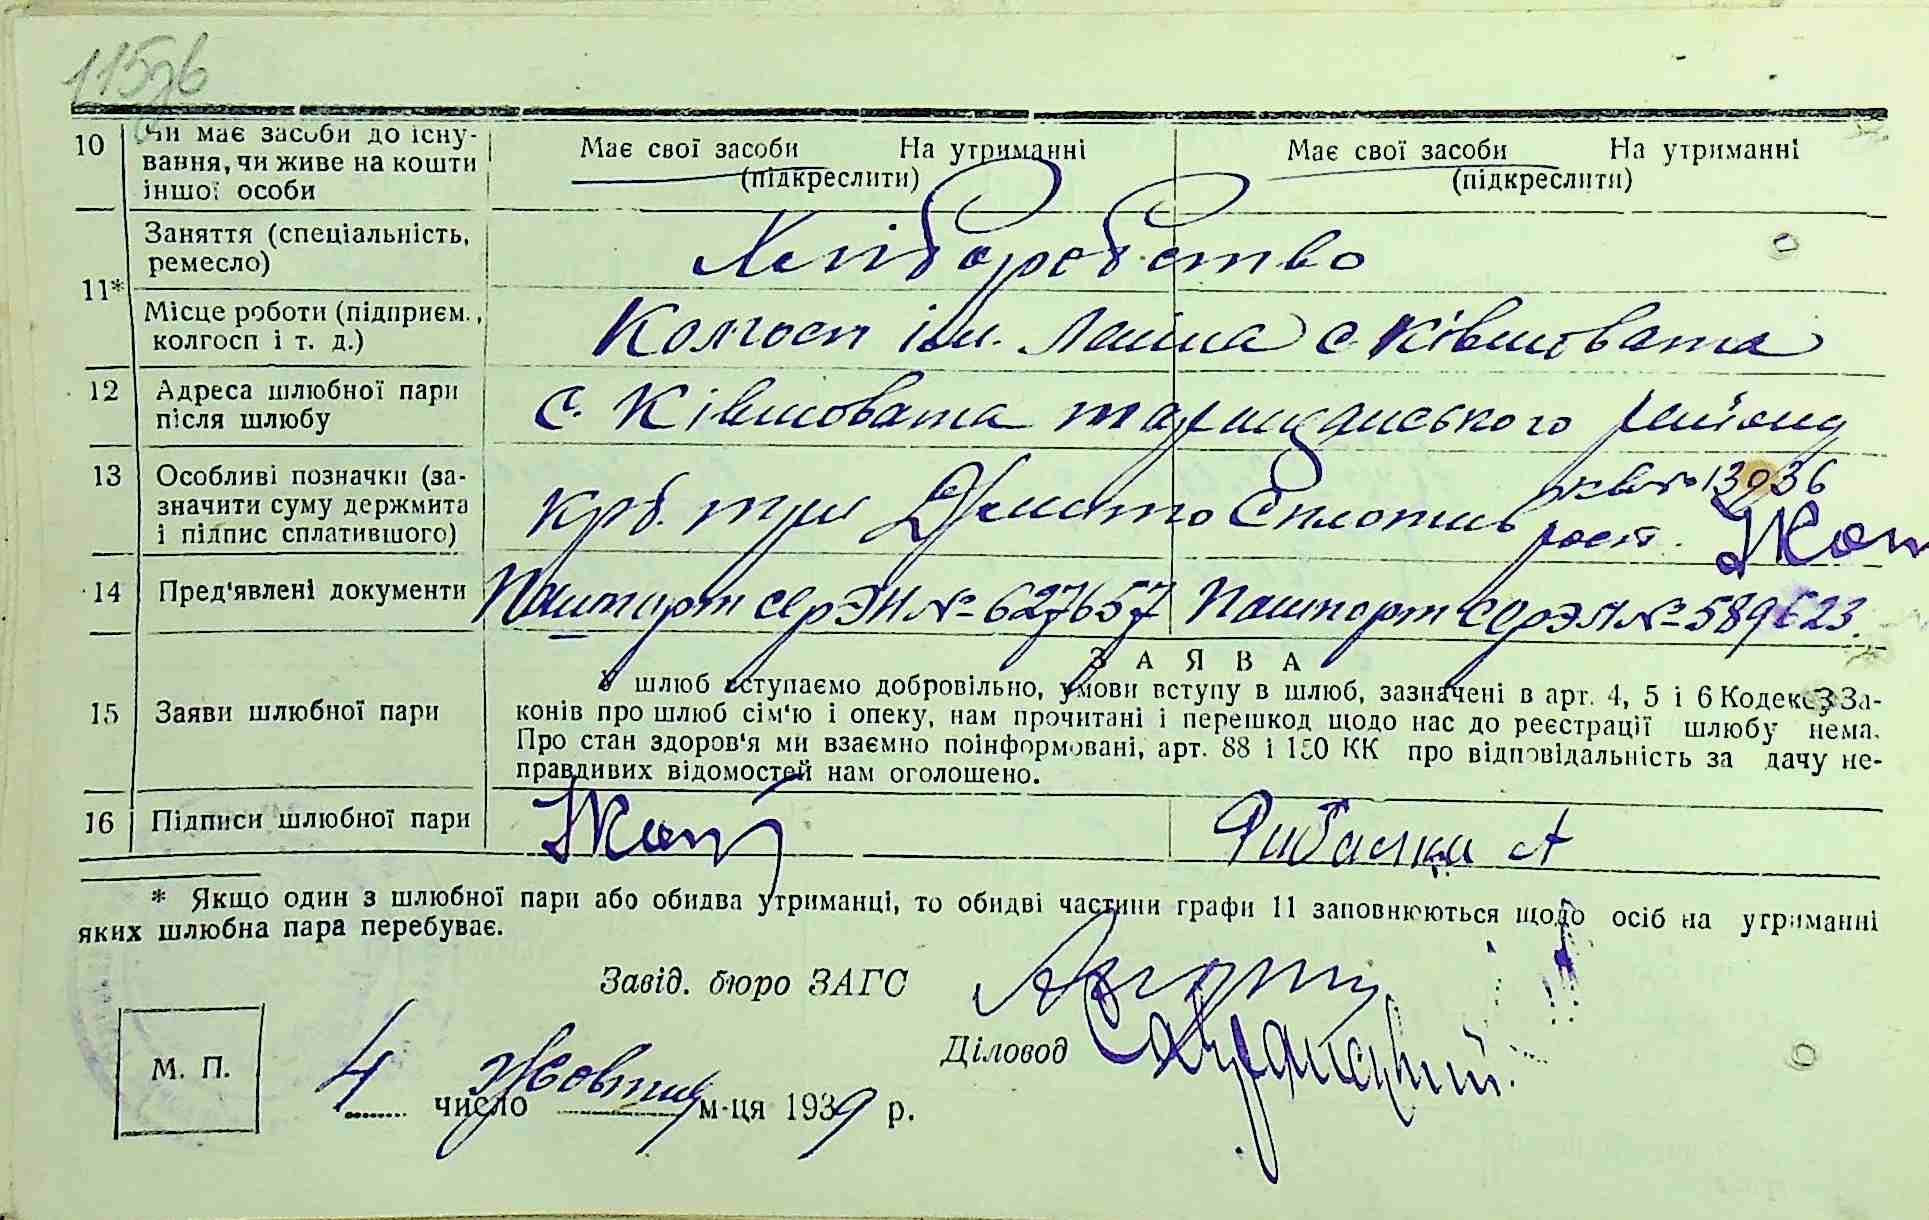 115зв
10 Чи має засоби до існу- Має свої засоби На утриманні Має свої засоби На утриманні
вання, чи живе на кошти (підкреслити) (підкреслити)
іншої особи
11* Заняття (спеціальність, Хліборобство
ремесло)
Місце роботи (підприєм., Колгосп ім. Леніна с. Ківшовата
колгосп і т. д.)
12 Адреса шлюбної пари с. Ківшовата таращанського району
після шлюбу
13 Особливі позначки (за- крб. три сплотив кв № 13036
значити суму держмита
і підпис сплатившого)
14 Пред'явлені документи Пашпорт сер ЭН № 627657 Пашпорт сер ЭЯ № 589623.
ЗАЯВА
15 Заяви шлюбної пари У шлюб вступаємо добровільно, умови вступу в шлюб, зазначені в арт. 4, 5 і 6 Кодексу За-
конів про шлюб сім'ю і опеку, нам прочитані і перешкод щодо нас до реєстрації шлюбу нема.
Про стан здоров'я ми взаємно поінформовані, арт. 88 і 150 КК про відповідальність за дачу не-
правдивих відомостей нам оголошено.
16 Підписи шлюбної пари Рибалка А
* Якщо один з шлюбної пари або обидва утриманці, то обидві частини графи 11 заповнюються щодо осіб на утриманні
яких шлюбна пара перебуває.
Завід. бюро ЗАГС
Діловод
М. П.
4 число Жовтня м-ця 1939 р.